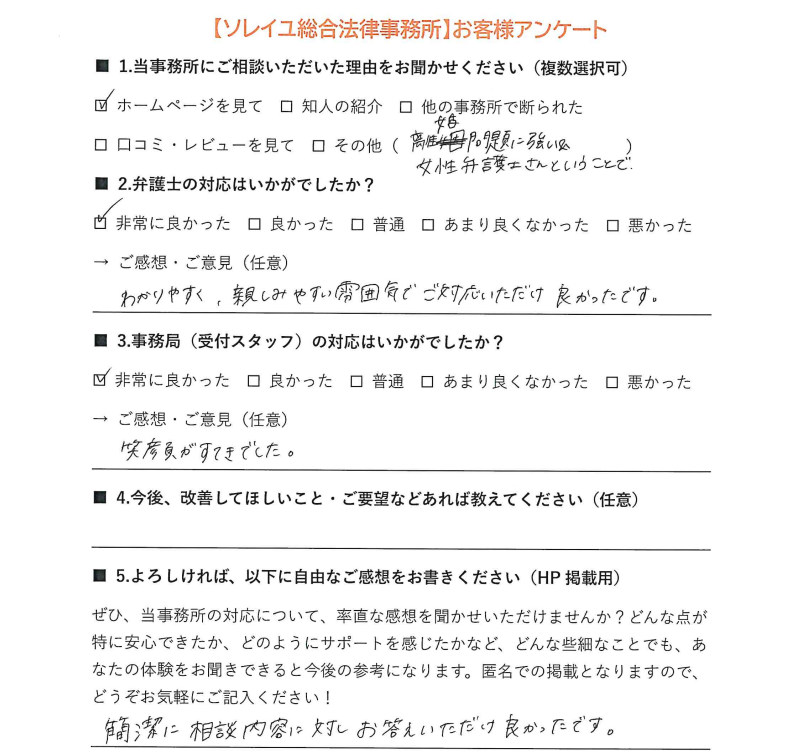 【ソレイユ総合法律事務所】お客様アンケート
■ 1.当事務所にご相談いただいた理由をお聞かせください（複数選択可）
☑ ホームページを見て □ 知人の紹介 □ 他の事務所で断られた
□ 口コミ・レビューを見て □ その他（ 離婚問題に強い ）
女性弁護士さんということで.
■ 2.弁護士の対応はいかがでしたか？
☑ 非常に良かった □ 良かった □ 普通 □ あまり良くなかった □ 悪かった
→ ご感想・ご意見（任意）
わかりやすく，親しみやすい雰囲気でご対応いただけ良かったです。
■ 3.事務局（受付スタッフ）の対応はいかがでしたか？
☑ 非常に良かった □ 良かった □ 普通 □ あまり良くなかった □ 悪かった
→ ご感想・ご意見（任意）
笑顔がすてきでした。
■ 4.今後、改善してほしいこと・ご要望などあれば教えてください（任意）
■ 5.よろしければ、以下に自由なご感想をお書きください（HP 掲載用）
ぜひ、当事務所の対応について、率直な感想を聞かせいただけませんか？どんな点が
特に安心できたか、どのようにサポートを感じたかなど、どんな些細なことでも、あ
なたの体験をお聞きできると今後の参考になります。匿名での掲載となりますので、
どうぞお気軽にご記入ください！
簡潔に相談内容に対しお答えいただけ良かったです。